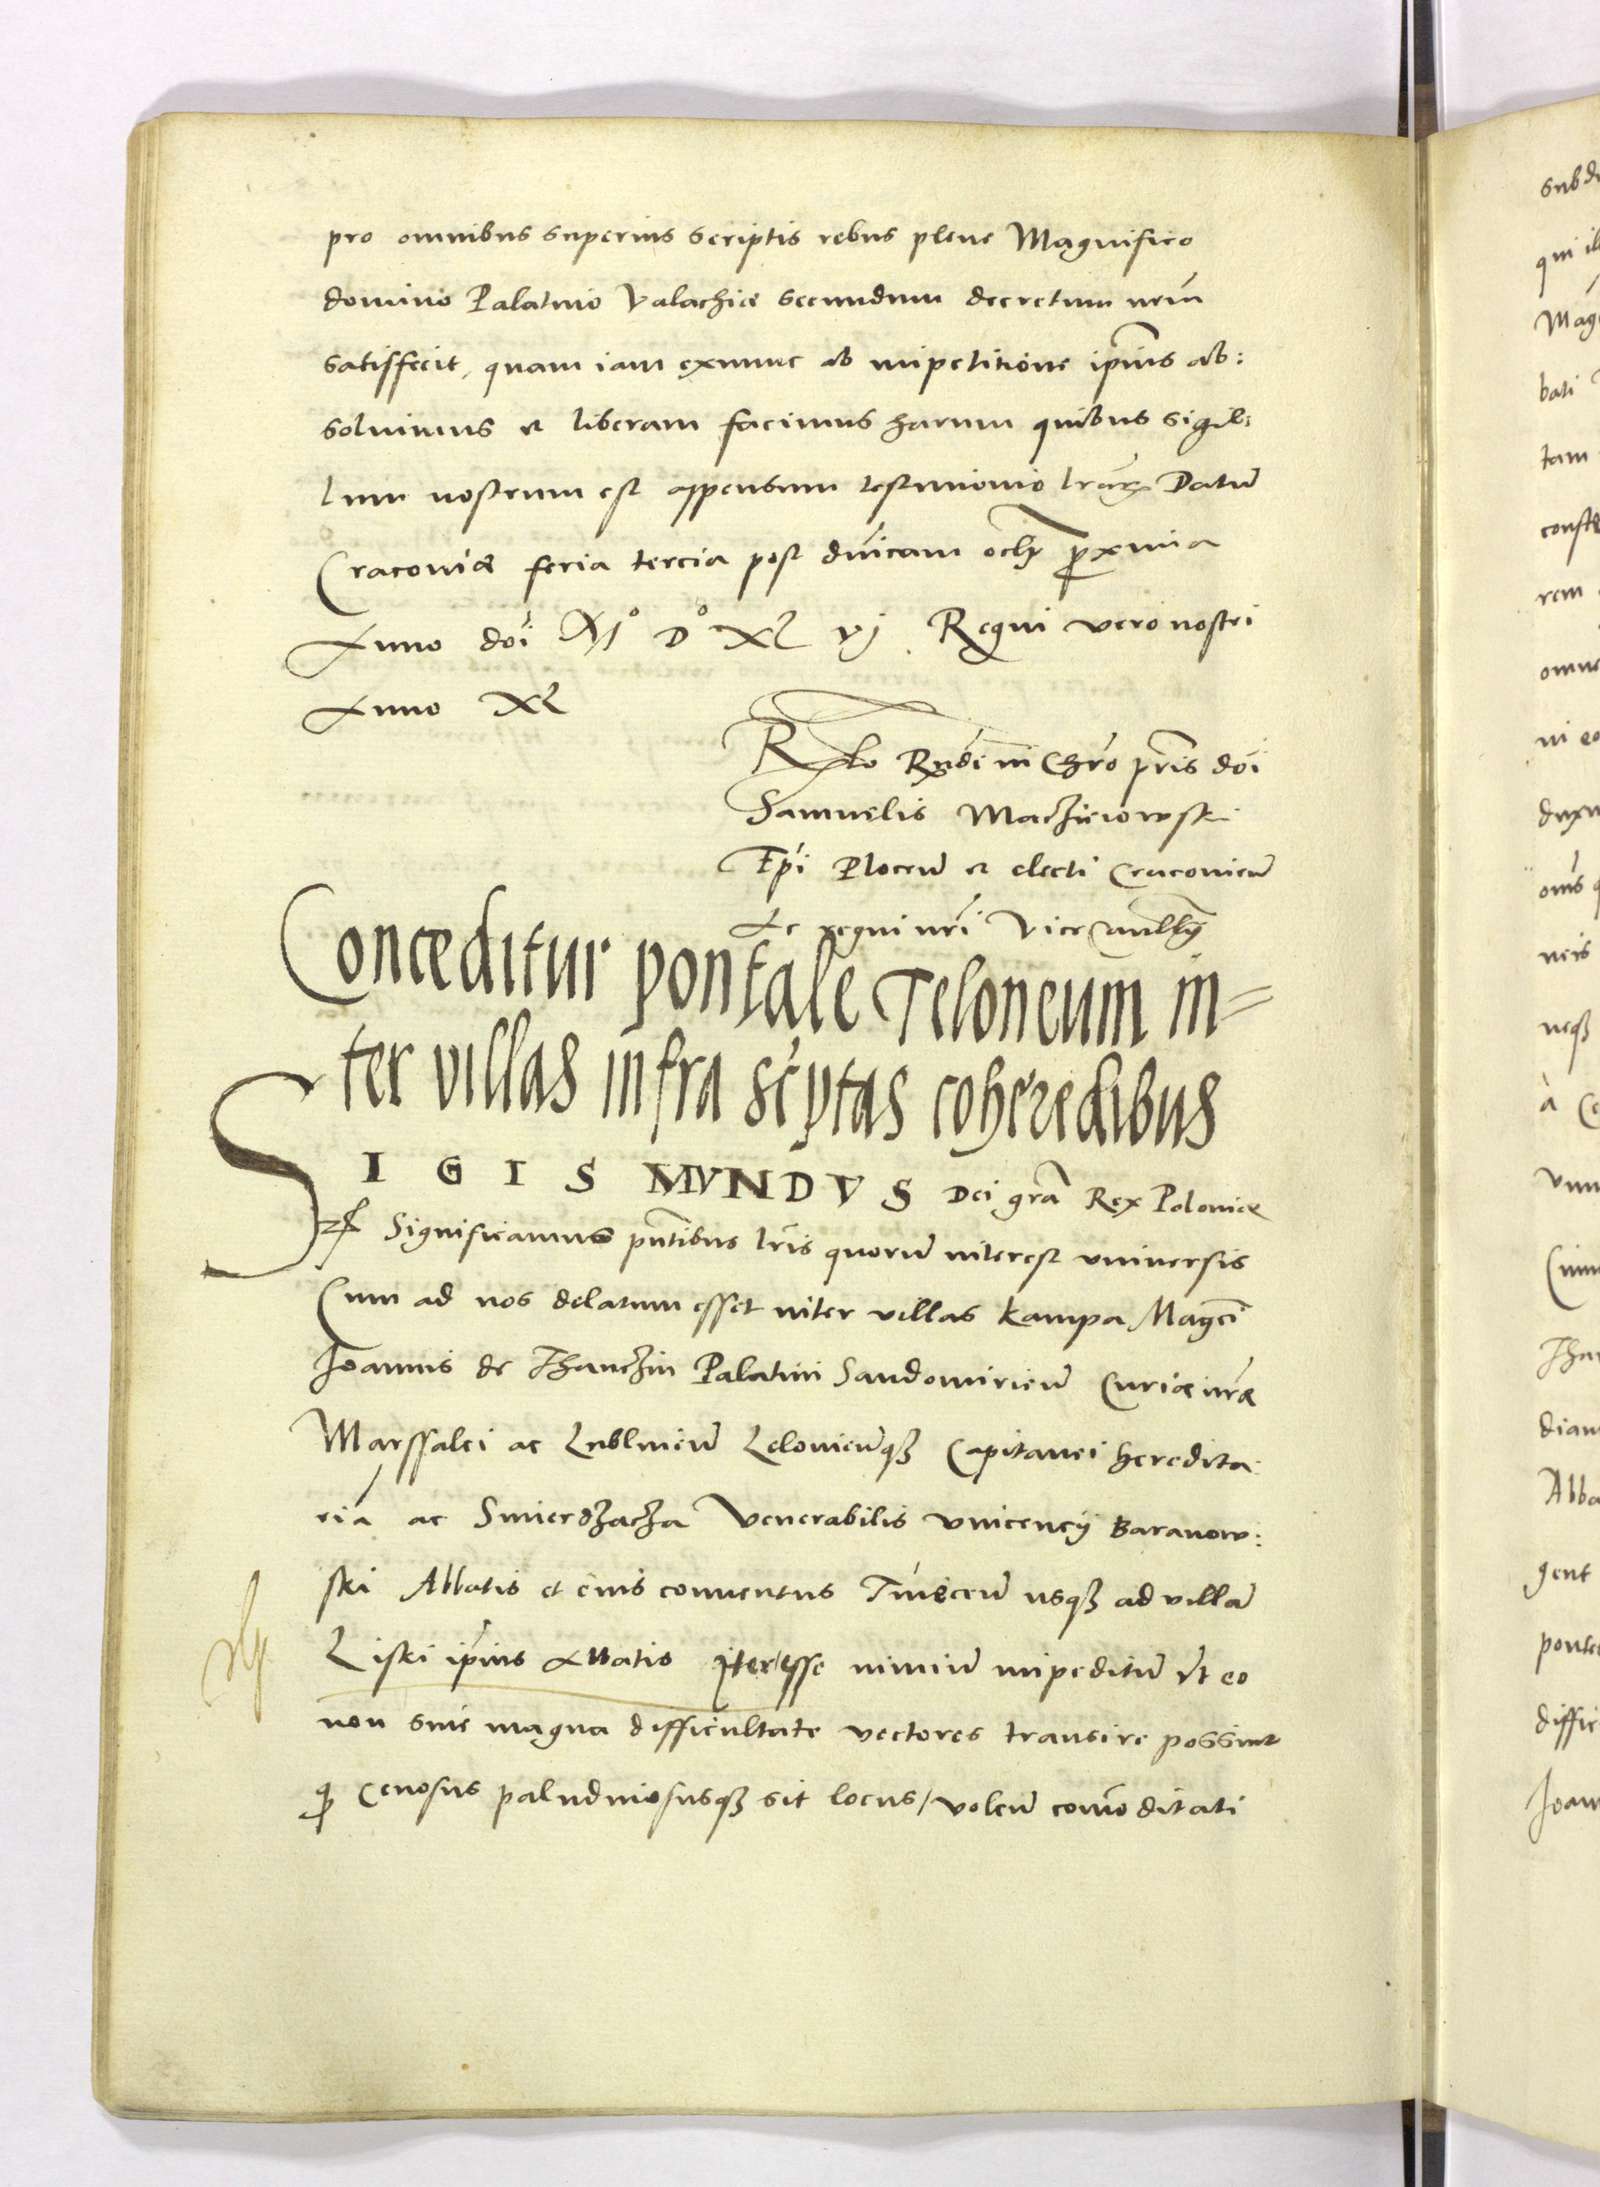 pro omnibus superius scriptis rebus plene Magnifico
domino Palatino Valachiæ secundum decretum nrm̄
satisffecit, quam iam exnunc ab impetitione ip̄ius ab:
soluimus et liberam facimus harum quibus sigil:
lum nostrum est appensum testimonio lrarꝝ Datū
Cracoviæ feria tercia post dn̄icam oculi proxima
Anno doi M° D° XL vj. Regni vero nostri
Anno XL
Rlo Rndi in Chro pris doi
Samuelis Maczieiowski
Epi Plocen̄ et electi Cracovien̄
Ac regni nri Vice
Conceditur pontale Teloneum in=
ter villas infra scriptas coheredibus
SIGISMVNDVS Dei gra Rex Poloniæ
Significamus pntibus lris quorū interest vniversis
Cum ad nos delatum esset inter villas Kampa Magci
Joannis de Thanczin Palatini Sandomirien̄ Curiæ nræ
Marssalci ac Lublinen̄ Lelovien̄qꝫ Capitanei heredita:
riā ac Smierdzacza Venerabilis Vincencij Baranow:
ski Abbatis et eius conventus Tinecen̄ usqꝫ ad villā
Liski ip̄ius Abbatis iter esse nimiū impeditū vt eo
non sine magna difficultate vectores transire possint
qͥ Cenosus paludinosusqꝫ sit locus / volen̄ com̄oditati
subd
qui il
Mag
bati
tam
const
rem
omn
ni eo
dux
oms
neis
neqꝫ
à Ce
vnu
Cuiu
Tha
dian
Abba
gent
ponte
diffic
Joan